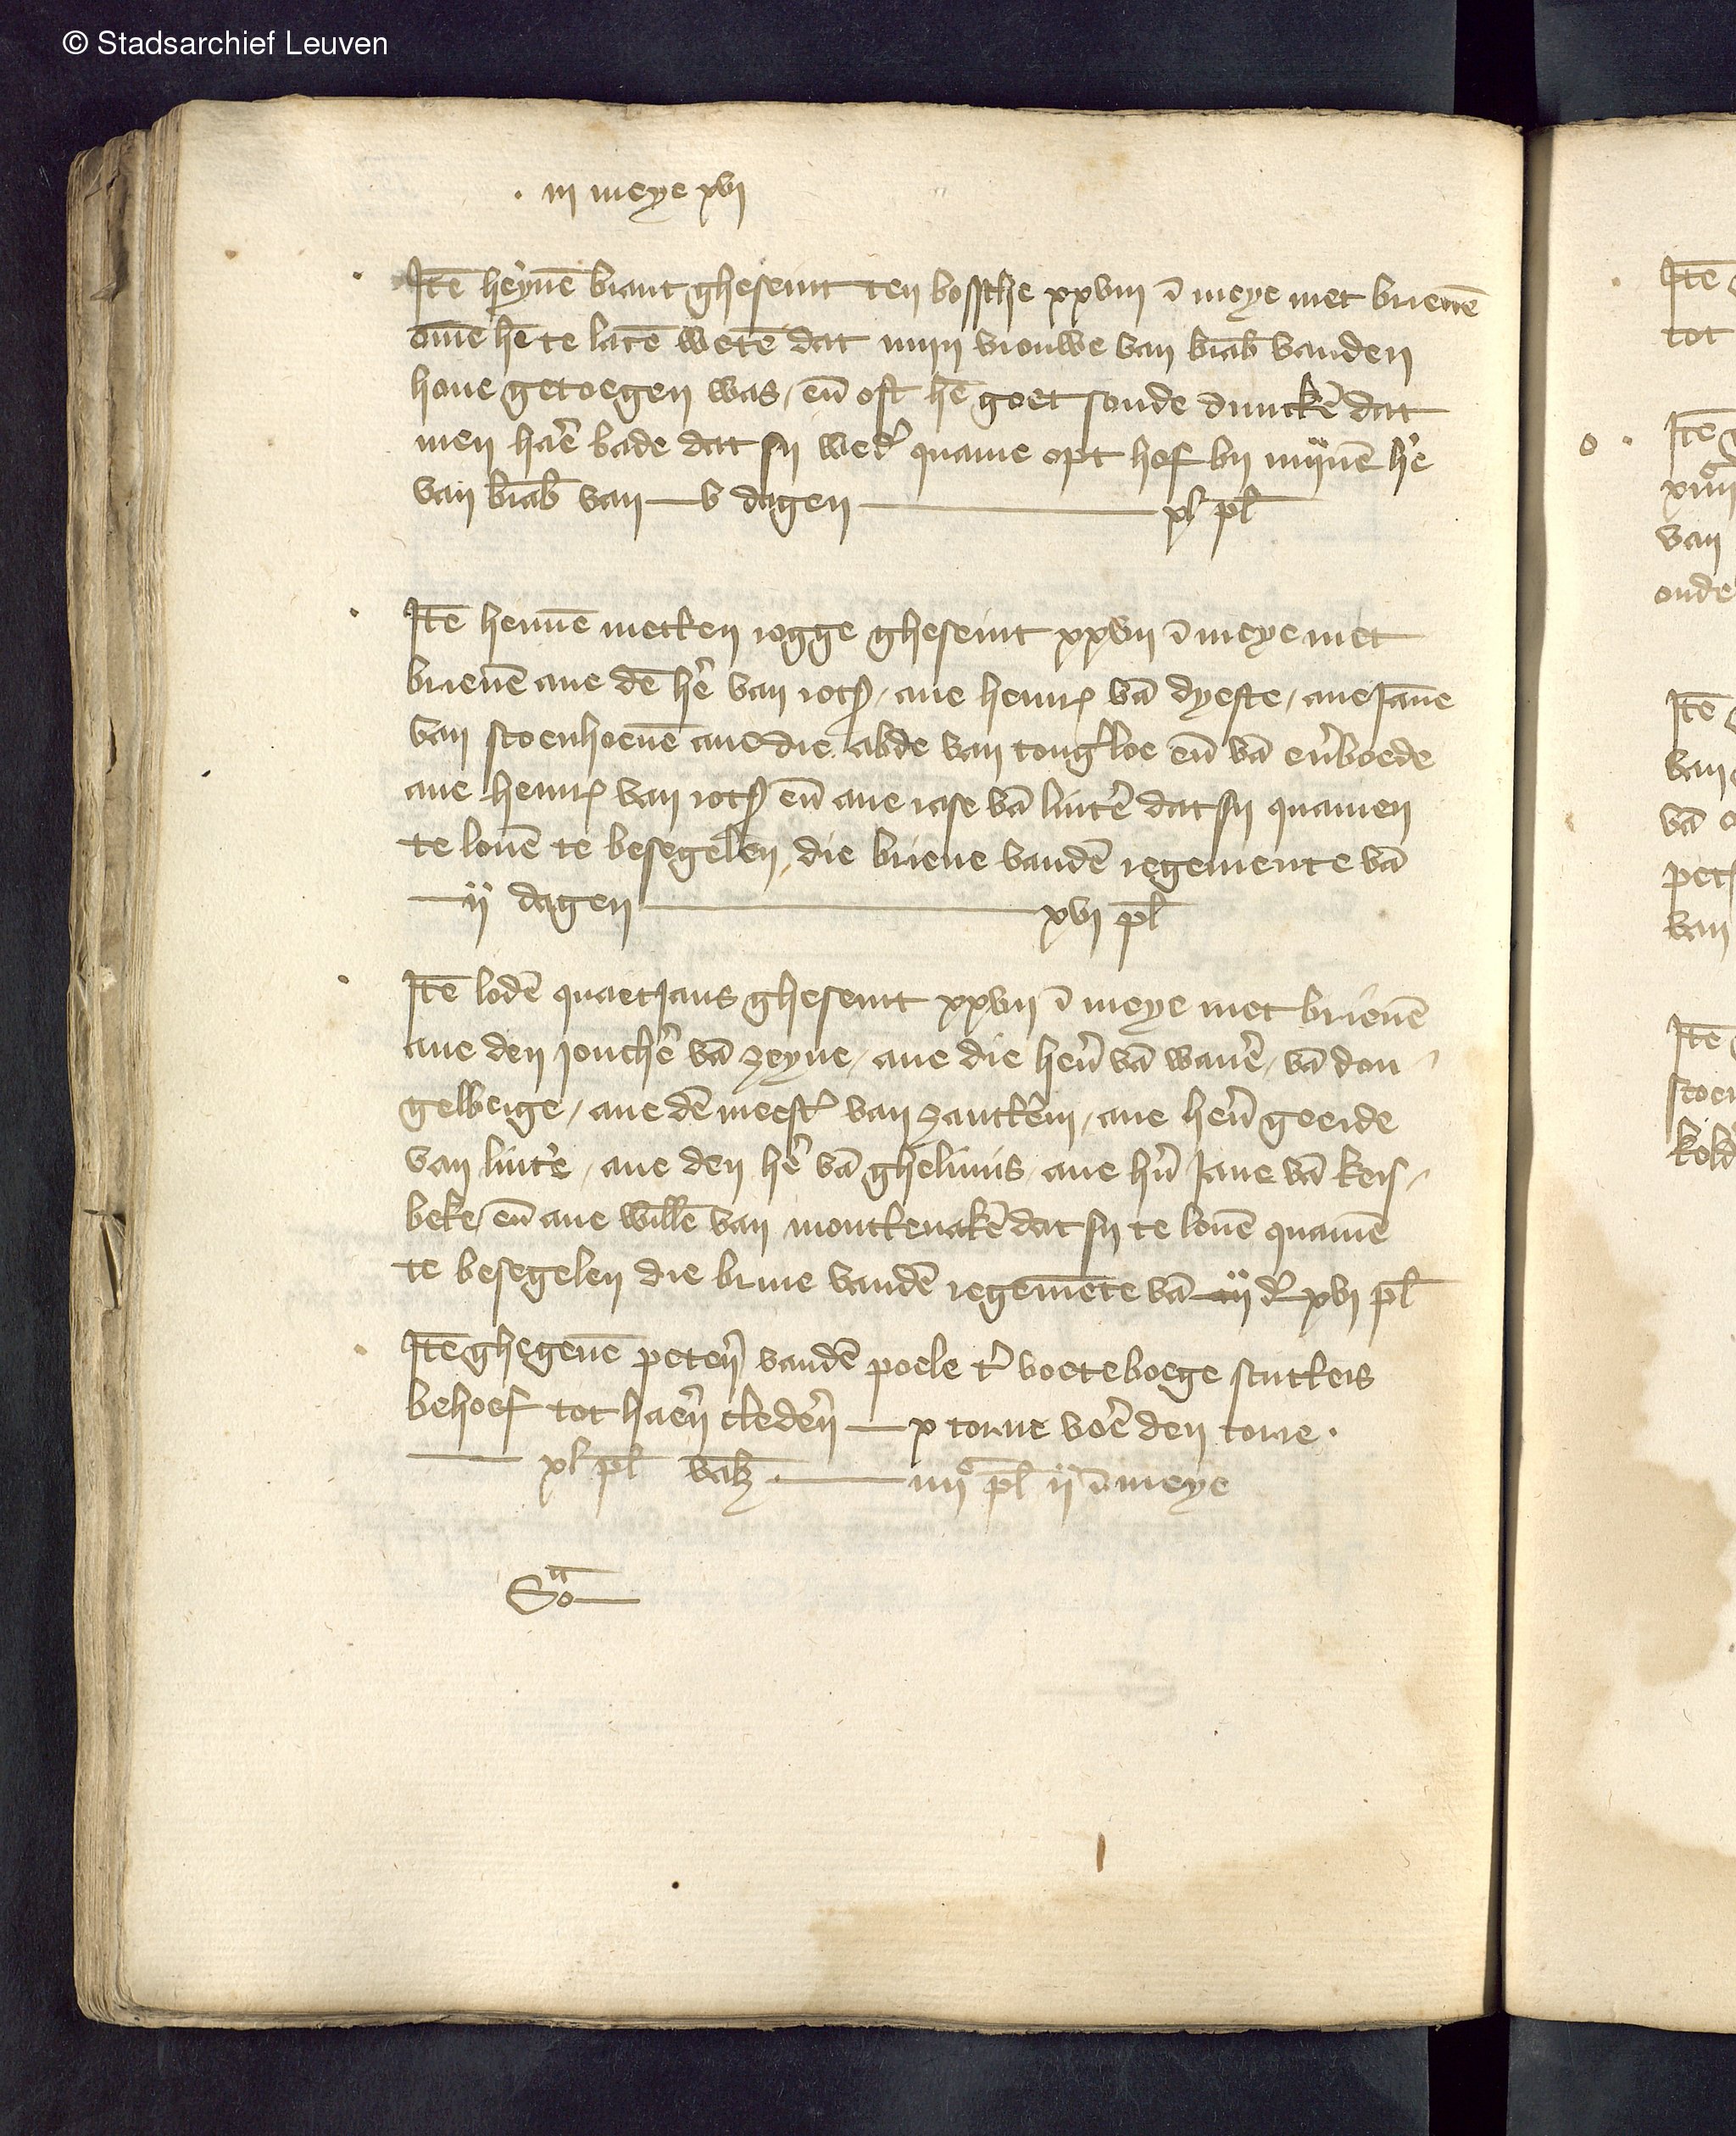 © Stadsarchief Leuven
. iij meye xvj
Itē heynē brant ghesent ten bossche xxviij ī meye met brieuē
ōme hē te latē wetē dat mijn vrouwe van brab vanden
houe getoegen was / eñ oft hē goet soude dunckē dat
men haer bade dat sij wed' quame opt hof bij mijnē h'e
van brab van v dagen xl pl
Itē hennē metken rogge ghesent xxvij ī meye met
brieuē ane dē h'e van rots / ane henr vā dyeste / ane Jāne
van scoenhouē ane die abde van tong'loe eñ vā eu'boede
ane henr van rots eñ ane rase vā lint'e dat sij quamen
te louē te besegelen die brieue vandē regemente vā
ij dagen xvj pl
Itē lodē quaetjans ghesent xxvij ī meye met brieuē
ane den jonch'e vā zeyne / ane die her' vā wau'e / vā don
gelberge / ane dē meest' van zantkem / ane her' geerde
van lint'e / ane den h'e vā ghelmis ane h'n Jane vā kers
beke / eñ ane willē van montkenakē dat sij te louē quamē
te besegelen die brieue vandē regemēte vā ij d' xvj pl
Itē ghegeuē peter' vandē poele t' voeteboege scutters
behoef tot haer' cleder' x torne voer den torre .
xl pl val' iiijc pl ij ī meye
So
Itē
tot
o . Itē
van
onde
Itē
van
vā
pet
van
Itē
scoen